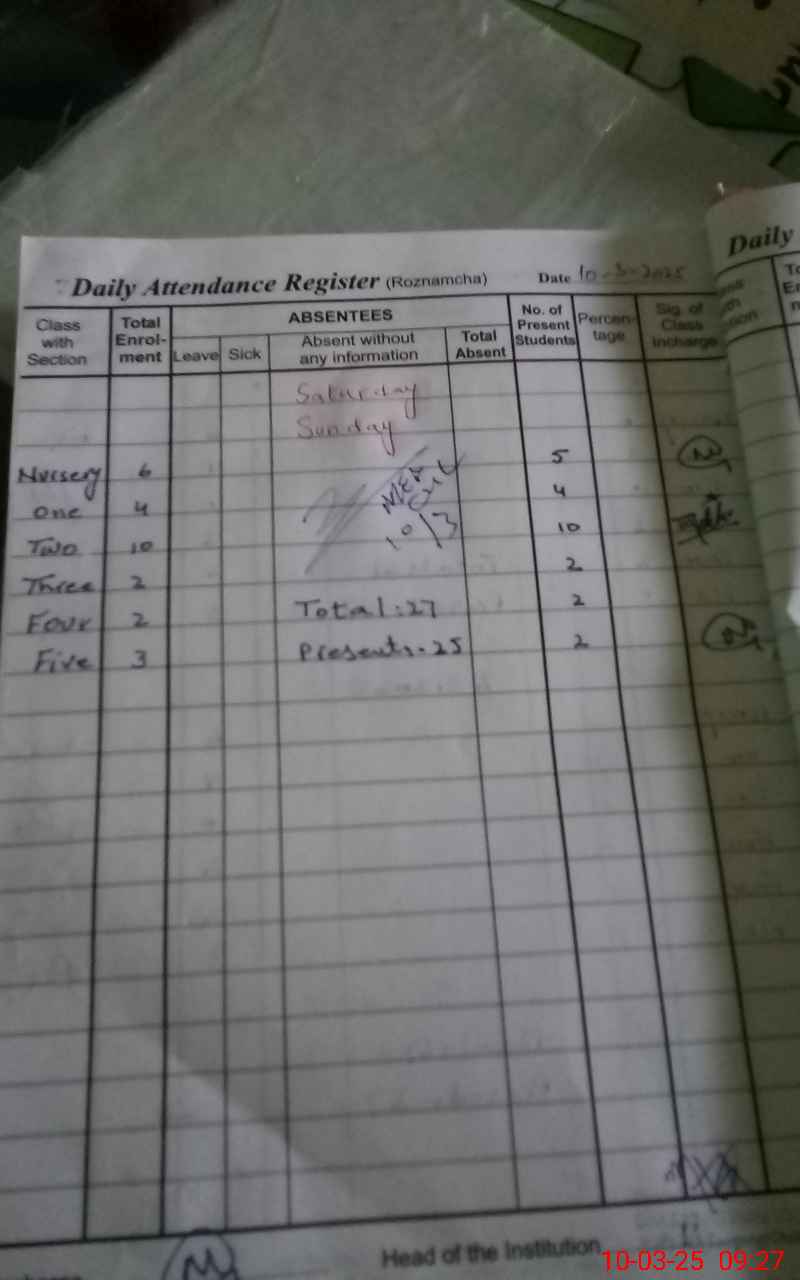 Daily Attendance Register (Roznamcha) Date 10-3-2025
Daily
Class with Section
Total Enrol-ment
ABSENTEES
Leave
Sick
Absent without any information
Total Absent
No. of Present Students
Percen-tage
Sig. of Class Incharge
Saturday
Sunday
Nursery 6 5
One 4 4
Two 10 10
Three 2 2
Four 2 Total:27 2
Five 3 Presents-25 2
10/3
Head of the Institution
10-03-25 09:27